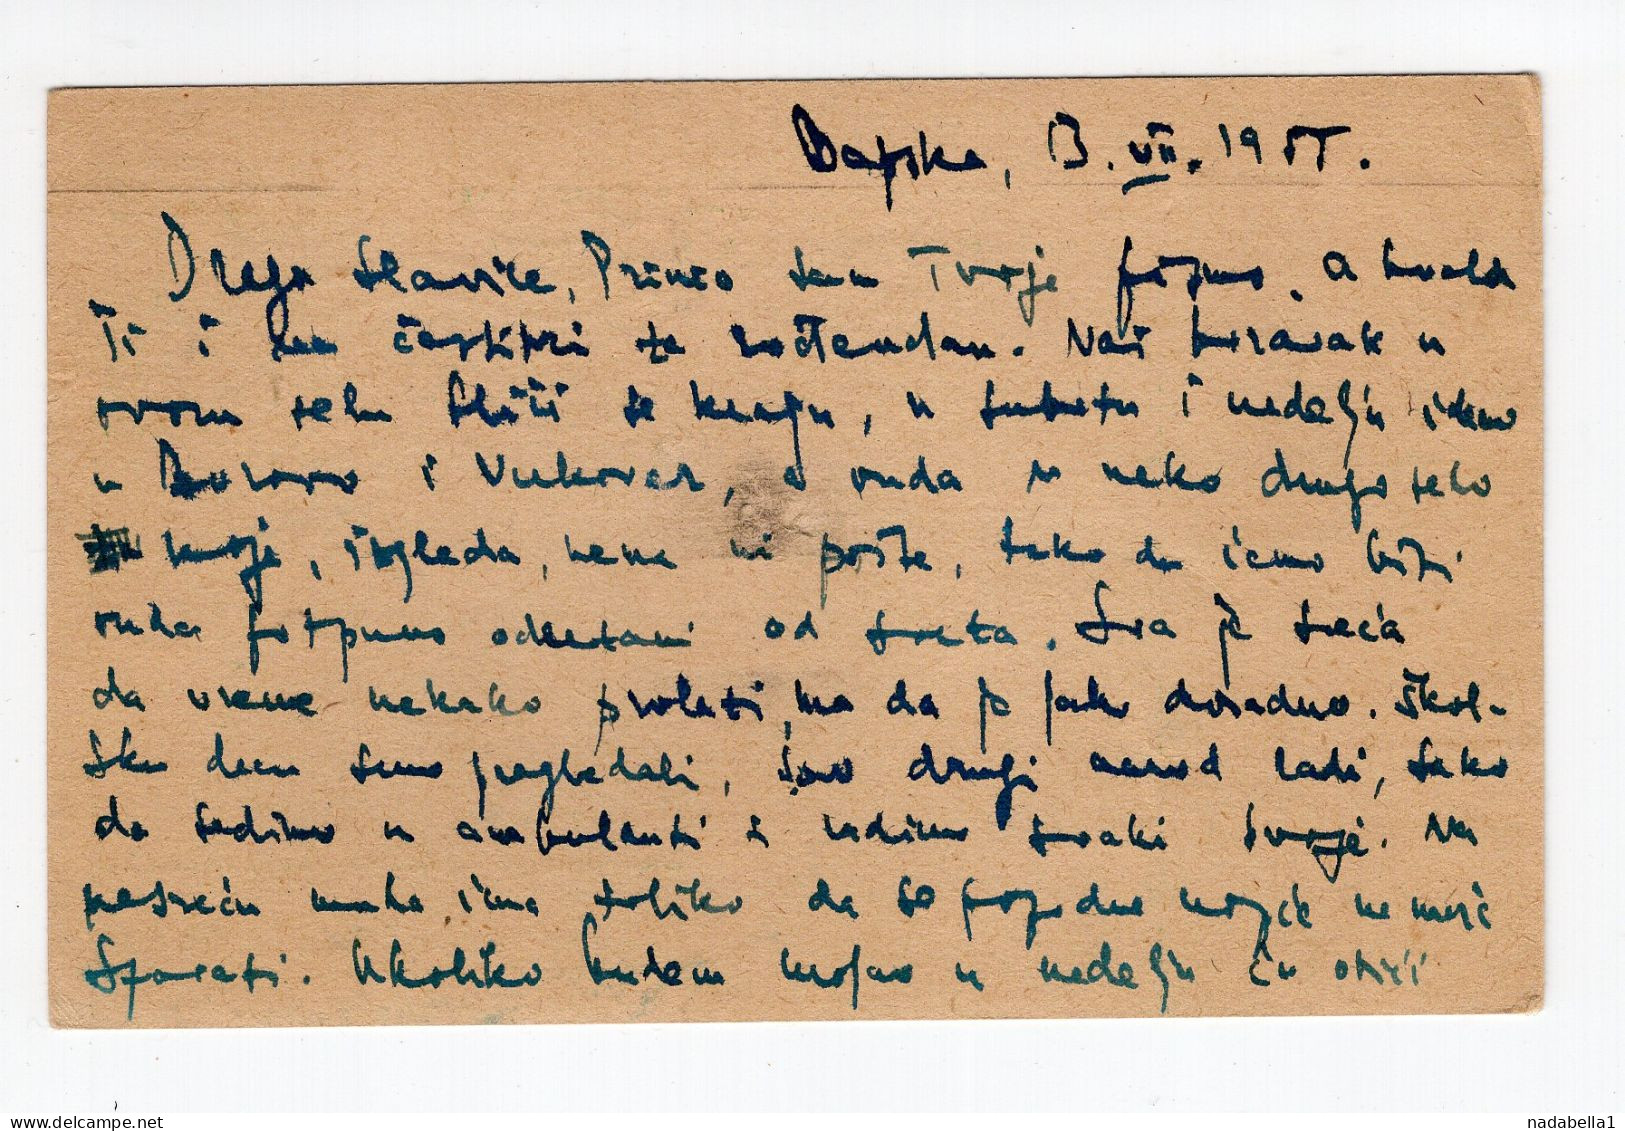 Bapska, 13. VII. 1955.
Draga Slavice, Primio sam Tvoje pismo, a hvala
Ti i na čestitci za rođendan. Naš boravak u
ovom selu bliži se kraju, u subotu i nedelju idemo
u Borovo i Vukovar, a onda u neko drugo selo
koje, izgleda, nema ni pošte, tako da ćemo biti
onda potpuno odsečeni od sveta. Sva je sreća
da vreme nekako prolazi, ma da je jako dosadno. Škol-
sku decu smo pregledali, sav drugi narod radi, tako
da sedimo u ambulanti i radimo svaki svoje. Na
nesreću muha ima toliko da se popodne uopće ne može
spavati. Ukoliko budem mogao u nedelju ću otići
nadabella1